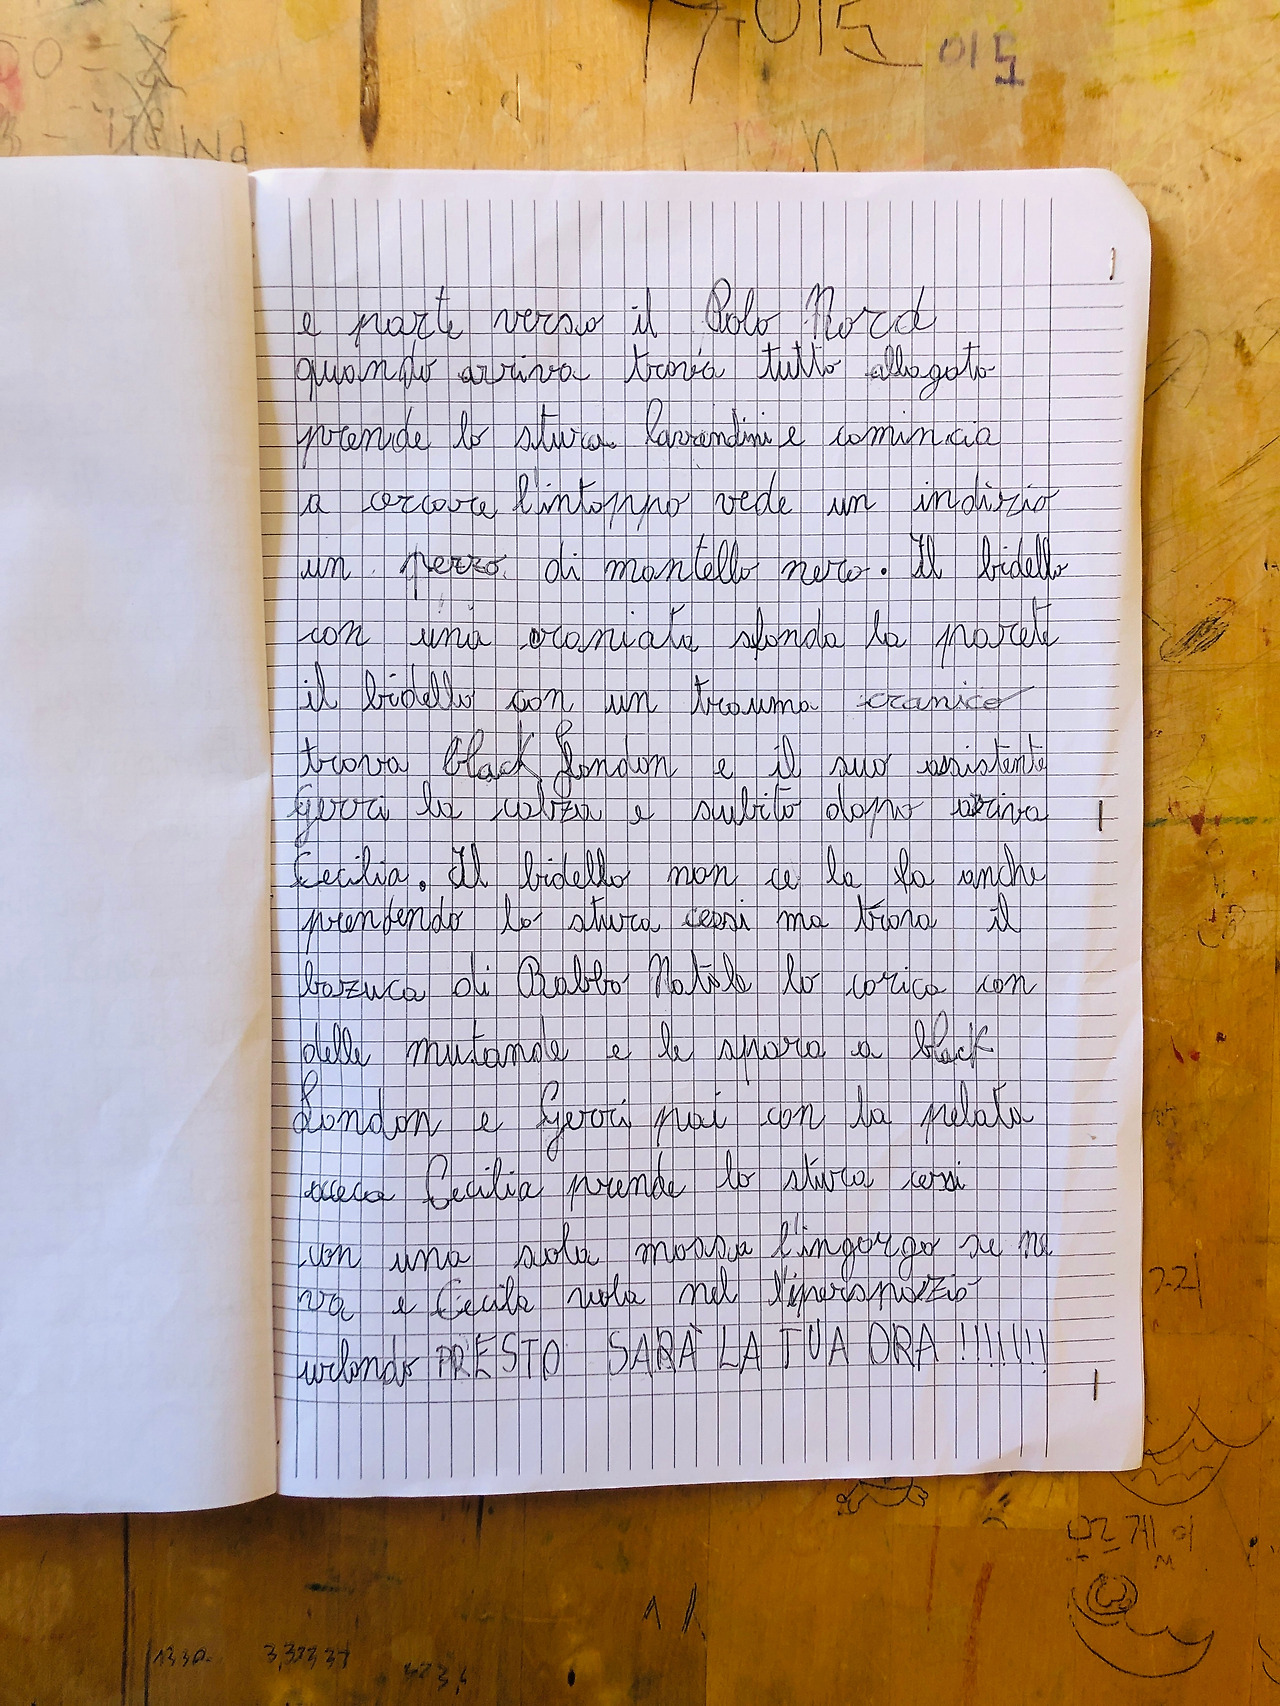 17-015
이도
e parte verso il Polo Nord
quando arriva trova tutto allagato
prende lo stura lavandini e comincia
a cercare l'intoppo vede un indizio
un pezzo di mantello nero. Il bidello
con una craniata sfonda la parete
il bidello con un trauma cranico
trova black London e il suo assistente
Gerri la calza e subito dopo arriva
Cecilia. Il bidello non ce la fa anche
prendendo lo stura cessi ma trova il
bazuca di Babbo Natale lo carica con
delle mutande e le spara a black
London e Gerri poi con la pelata
acceca Cecilia prende lo stura cessi
con una sola mossa l'ingorgo se ne
va e Cecila vola nel l'iperspazio
urlando PRESTO SARÀ LA TUA ORA !!!!!!!
1330.